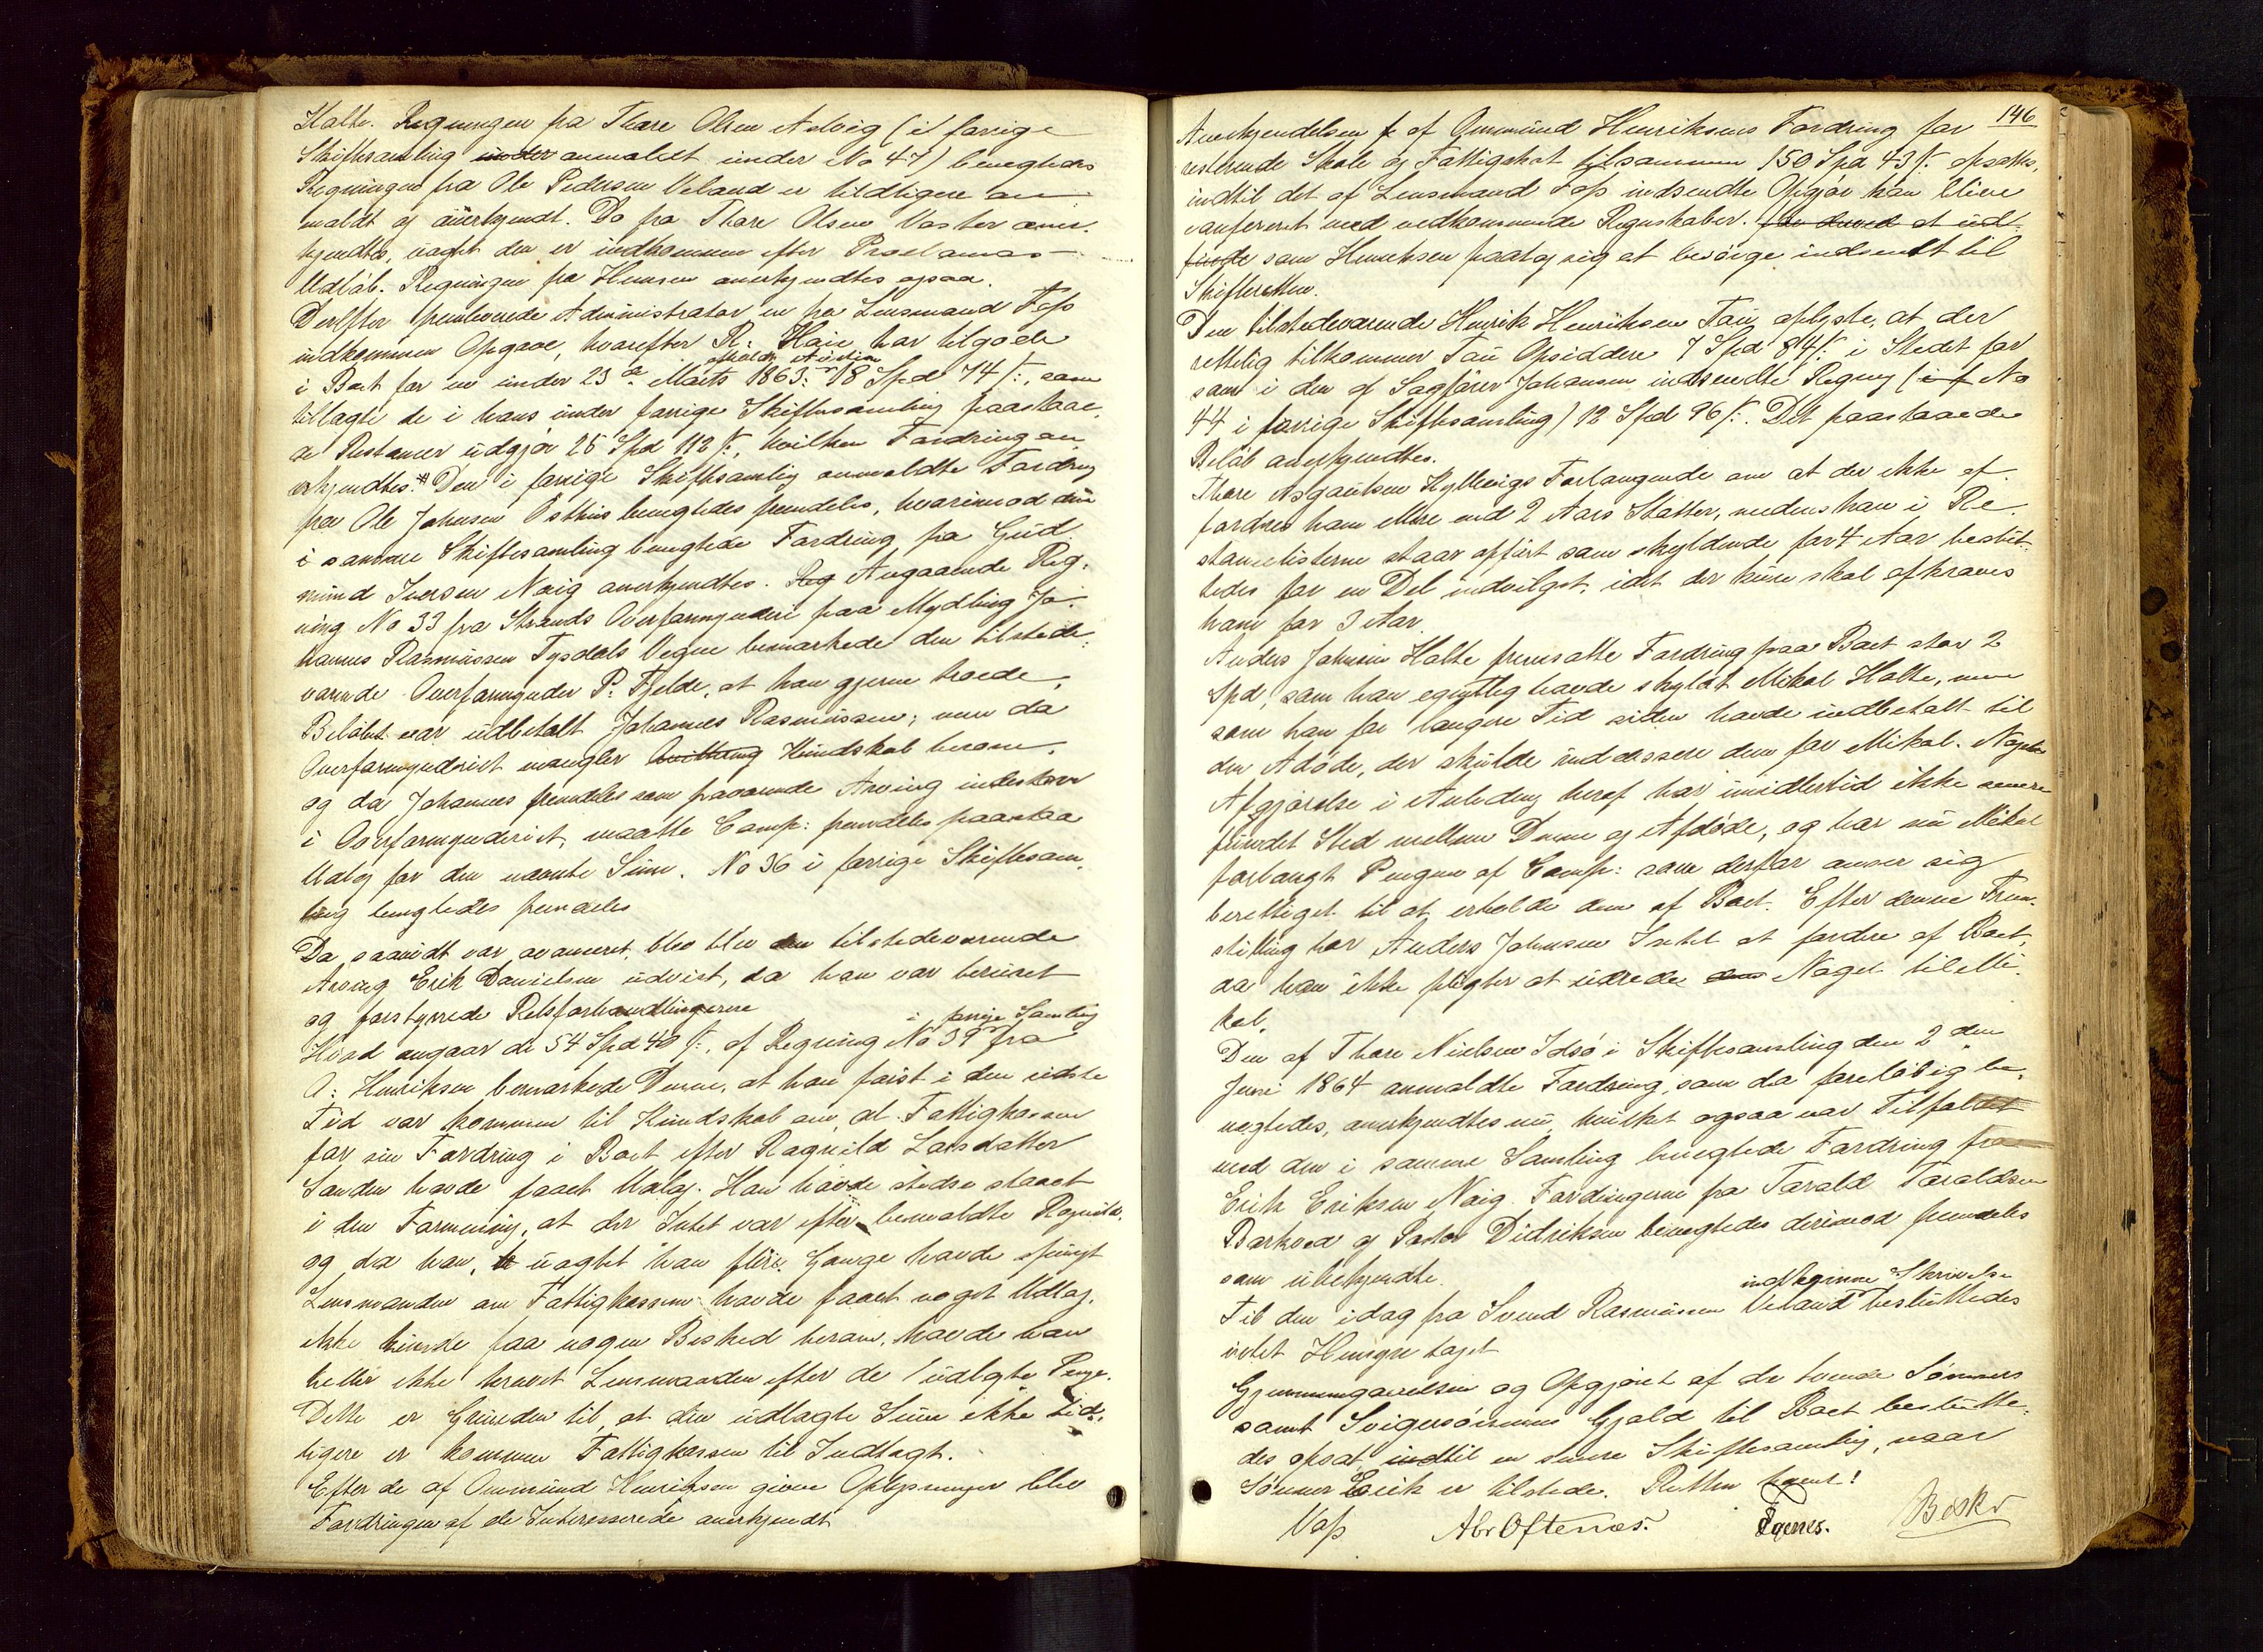 Halte. Regningen fra Thore Olsen Advig (i forrige
Skiftesamling under anmeldt under No 47) benegtedes
Regningen fra Ole Pedersen Veland er tildligere an
meldt og anerkjendt. Do fra Thore Olsen Vaster aner-
kjendtes, uagtet den er indkommen efter Proclamas
Udløb. Regningen fra Hansen anerkjendtes ogsaa.
Derefter fremleverede Administrator en fra Lensmand Foss
indkommen Opgave, hvorefter R: Haie har tilgode
i Boet for en under 23de Marts 1863 afholdt Auction 18 Spd 74 s:, som
tillagt de i hans under forrige Skiftesamling paastaae-
de Restancer udgjør 25 Spd 112 s:, hvilken Fordring an
erkjendtes. Den i forrige Skiftesamlig anmeldte Fordring
fra Ole Johnsen Østhus benegtedes fremdeles, hvorimod den
i samme Skiftesamling benegtede Fordring fra Gud
mund Iversen Naig anerkjendtes. Reg Angaaende Reg-
ning No 33 fra Strands Overformynderi paa Myndling Jo-
hannes Rasmussen Tysdals Vegne bemærkede den tilstede-
værende Overformynder P: Fjelde, at han gjerne troede,
Beløbet var udbetalt Johannes Rasmussen; men da
Overformynderiet mangler Qvittering Kundskab herom,
og da Johannes fremdeles som fraværende Arving indestaar
i Overformynderiet, maatte Comp: fremdeles paastaa
Udlæg for den nævnte Sum. No 36 i forrige Skiftesam-
ling benegtedes fremdeles
Da saavidt var avanceret, blev blev den tilstedeværende
Arving Erik Danielsen udvist, da han var beruset
og forstyrrede Retsforhandlingerne
Hvad angaar de 54 Spd 40 s:, af Regning No 39 i forrige Samling fra
A: Henriksen bemærkede Denne, at han først i den sidste
Tid var kommen til Kundskab om, at Fattigkassen
for sin Fordring i Boet efter Ragnild Larsdatter
Sanden havde faaet Udlæg. Han havde stedse staaet
i den Formening, at der Intet var efter bemeldte Ragnild,
og da han, uagtet han flere Gange havde spurgt
Lensmanden om Fattigkassen havde faaet noget Udlæg,
ikke kunde faa nogen Besked herom, havde han
heller ikke krævet Lensmanden efter de udlagte Penge.
Dette er Grunden til, at den udlagte Sum ikke tid-
ligere er kommen Fattigkassen til Indtægt.
Efter de af Ommund Henriksen givne Oplysninger blev
Fordringen af de Interesserede anerkjendt
146
Anerkjendelsen af Ommund Henriksens Fordring for
resterende Skole og Fattigskat tilsammen 150 Spd 43 s: opsattes,
indtil det af Lensmand Foss indsendte Opgjør kan blive
confereret med vedkommende Regnskaber. for derved at ud-
finde som Henriksen paatog sig at besørge indsendt til
Skifteretten.
Den tilstedeværende Henrik Henriksen Tau oplyste, at der
rettelig tilkommer Tau Opsiddere 7 Spd 84 s: i Stedet for
som i den af Sagfører Johansen indsendte Regning (i f No
44 i forrige Skiftesamling) 12 Spd 96 s:. Det paastaaede
Beløb anerkjendtes.
Thore Asgautsen Kyllevigs Forlangende om at der ikke af-
fordres ham Mere end 2 Aars Skatter, medens han i Re-
stancelisterne staar opført som skyldende for 4 Aar beslut-
tedes for en Del indvilget, idet der kun skal afkræves
ham for 3 Aar.
Anders Johnsen Halte fremsatte Fordring paa Boet stor 2
Spd, som han egentlig havde skyldt Mikal Halte, men
som han for længere Tid siden havde indbetalt til
den Afdøde, der skulde indcassere dem for Mikal. Nogen
Afgjørelse i Anledning heraf har imidlertid ikke senere
fundet Sted mellem Denne og Afdøde, og har nu Mikal
forlangt Pengene af Comp: som derfor anser sig
berettiget til at erholde dem af Boet. Efter denne Frem-
stilling har Anders Johnsen Intet at fordre af Boet,
da han ikke pligter at udrede dem Noget til Mi-
kal.
Den af Thore Nielsen Idsø i Skiftesamling den 2den
Juni 1864 anmeldte Fordring, som da foreløbig be-
negtedes, anerkjendtes nu, hvilket ogsaa var Tilfældet
med den i samme Samling benegtede Fordring fra
Erik Eriksen Naig. Fordringerne fra Tarald Taraldsen
Barkved og Peder Didriksen benegtedes derimod fremdeles
som ubekjendte.
Til den idag fra Svend Rasmussen Veland indkomne Skrivelse besluttedes
intet Hensyn taget
Gjennemgaaelsen og Opgjøret af de tvende Sønners
samt Svigersønnens Gjæld til Boet beslutte-
des opsat indtil en senere Skiftesamling, naar
Sønnen Erik er tilstede. Retten hævet!
Voss Abr Oftenæs. Egenes. Beskr